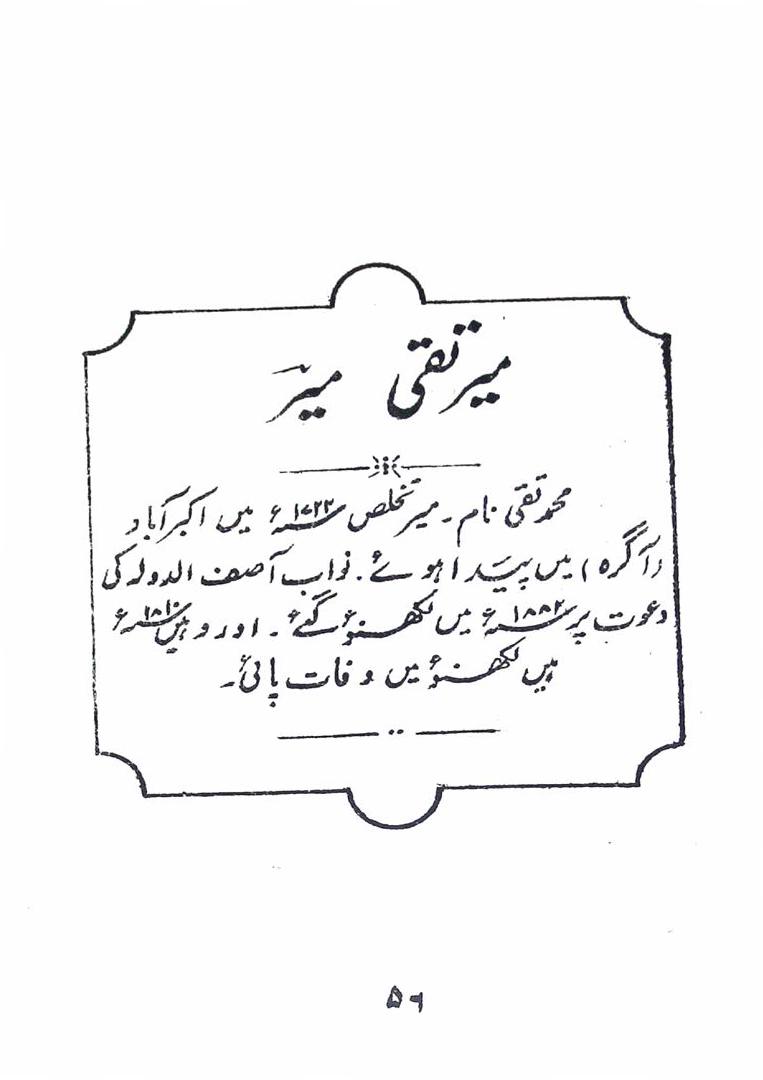 میر تقی میر
محمد تقی نام۔ میر تخلص ۱۷۲۲ء میں اکبرآباد
(آگرہ) میں پیدا ہوئے۔ نواب آصف الدولہ کی
دعوت پر ۱۸۸۲ء میں لکھنؤ گئے۔ اور وہیں ۱۸۱۰ء
میں لکھنؤ میں وفات پائی۔
۵۶